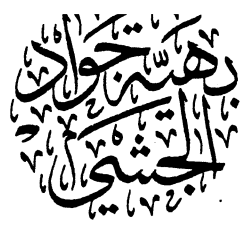 بهية جواد
الجشي